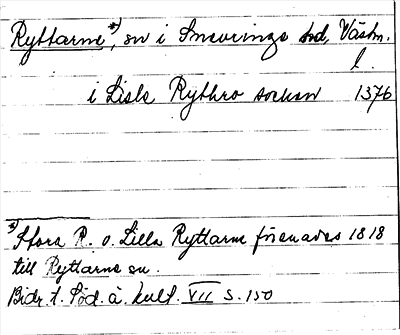 Ryttarne*), sn i Snevringe hd, Västm.
l.
i Lisla Rythro sochan 1376
*) Stora R. o. Lilla Ryttarne förenades 1818
till Ryttarne sn.
Bidr. t. Söd. ä. kult. VII s. 150